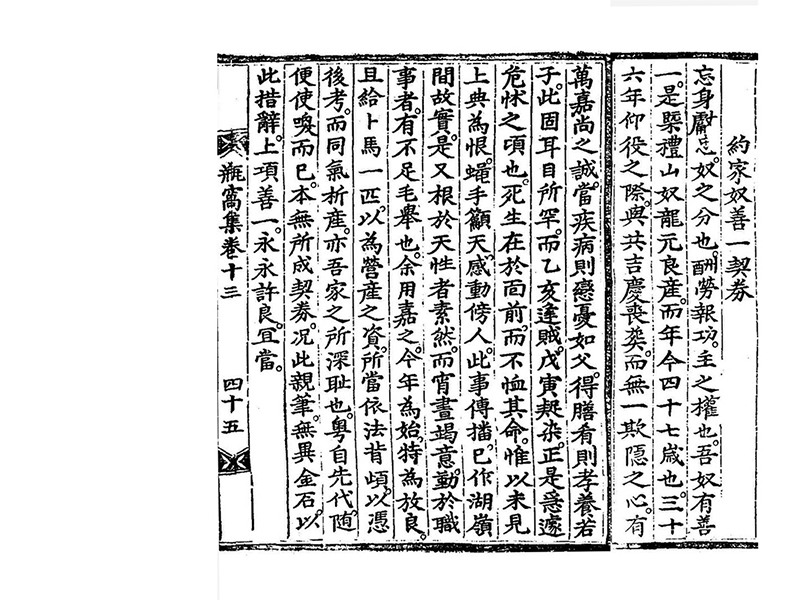 約家奴善一契券
忘身爵忘。奴之分也。酬勞報功。主之權也。吾奴有善
一。是槩禮山奴龍元良產。而年今四十七歲也。三十
六年仰役之際。與共吉慶喪葬。而無一欺隱之心。有
萬嘉尚之誠。當疾病則慼憂如父。得膳肴則孝養若
子。此固耳目所罕。而乙亥逢賊。戊寅疑染。正是急遽
危怵之項也。死生在於面前。而不恤其命。惟以未見
上典為恨。蠅手籲天。感動傍人。此事傳播。已作湖嶺
間故實。是又根於天性者素然。而宵晝竭意。勤於職
事者。有不足毛舉也。余用嘉之。今年為始。特為放良。
且給卜馬一匹。以為營產之資。所當依法背頉。以憑
後考。而同氣析產。亦吾家之所深耻也。粵自先代。随
便使喚而已。本無所成契券。况此親筆。無異金石。以
此措辭。上項善一。永永許良。宜當。
瓶窩集卷十三
四十五